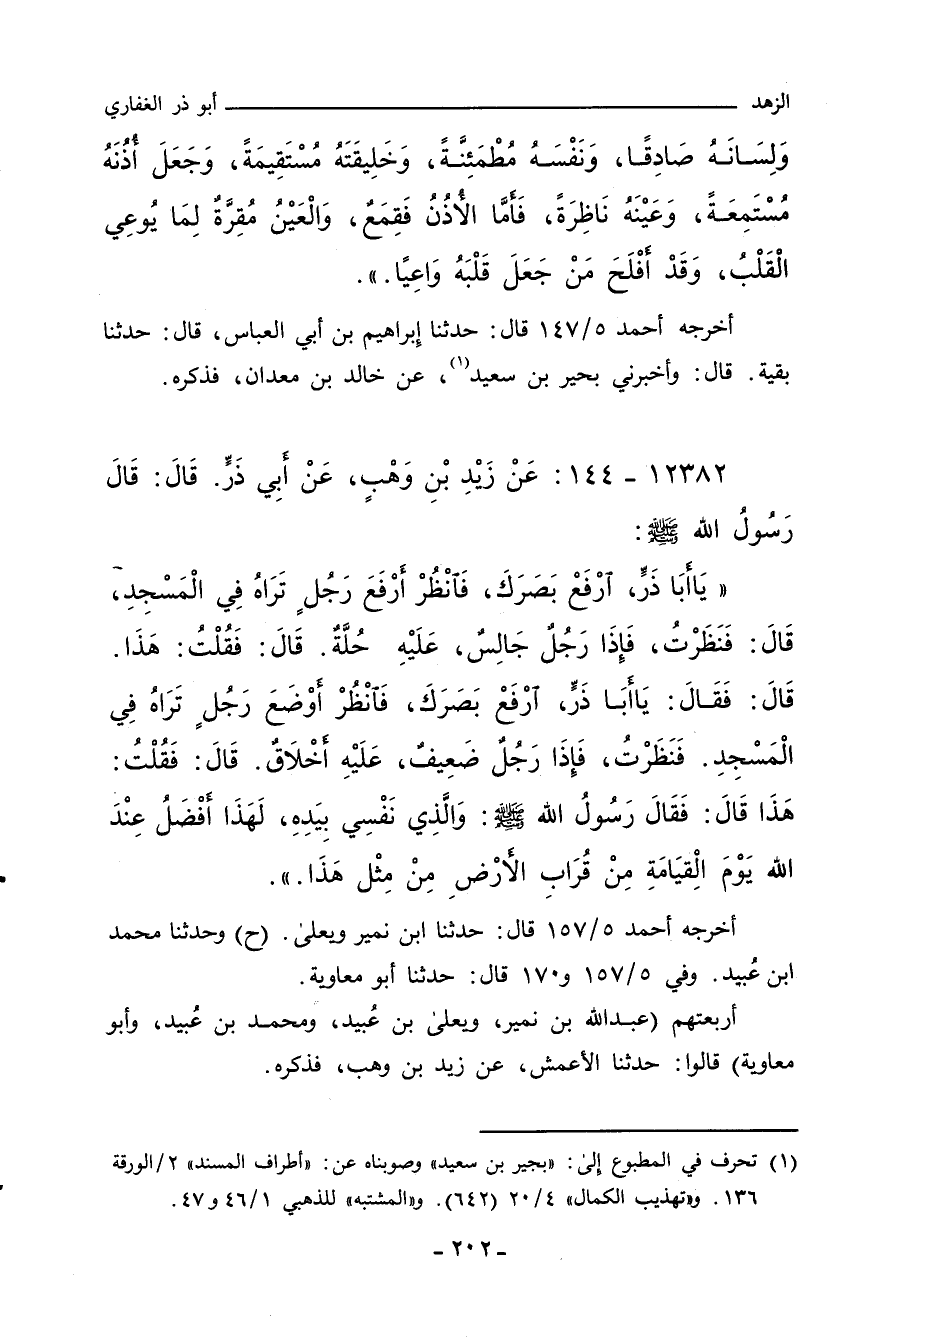 الزهد ـــــــــــــ أبو ذر الغفاري
وَلِسَانَهُ صَادِقًا، وَنَفْسَهُ مُطْمَئِنَّةً، وَخَلِيقَتَهُ مُسْتَقِيمَةً، وَجَعَلَ أُذُنَهُ
مُسْتَمِعَةً، وَعَيْنَهُ نَاظِرَةً، فَأَمَّا الأُذُنُ فَقِمَعٌ، وَالْعَيْنُ مُقِرَّةٌ لِمَا يُوعِي
الْقَلْبُ، وَقَدْ أَفْلَحَ مَنْ جَعَلَ قَلْبَهُ وَاعِيًا.».
أخرجه أحمد ١٤٧/٥ قال: حدثنا إبراهيم بن أبي العباس، قال: حدثنا
بقية. قال: وأخبرني بحير بن سعيد(١)، عن خالد بن معدان، فذكره.
١٢٣٨٢ - ١٤٤: عَنْ زَيْدِ بْنِ وَهْبٍ، عَنْ أَبِي ذَرٍّ. قَالَ: قَالَ
رَسُولُ الله ﷺ:
« يَاأَبَا ذَرٍّ، ٱرْفَعْ بَصَرَكَ، فَٱنْظُرْ أَرْفَعَ رَجُلٍ تَرَاهُ فِي الْمَسْجِدِ،
قَالَ: فَنَظَرْتُ، فَإِذَا رَجُلٌ جَالِسٌ، عَلَيْهِ حُلَّةٌ. قَالَ: فَقُلْتُ: هَذَا.
قَالَ: فَقَالَ: يَاأَبَا ذَرٍّ، ٱرْفَعْ بَصَرَكَ، فَٱنْظُرْ أَوْضَعَ رَجُلٍ تَرَاهُ فِي
الْمَسْجِدِ. فَنَظَرْتُ، فَإِذَا رَجُلٌ ضَعِيفٌ، عَلَيْهِ أَخْلَاقٌ. قَالَ: فَقُلْتُ:
هَذَا قَالَ: فَقَالَ رَسُولُ الله ﷺ: وَالَّذِي نَفْسِي بِيَدِهِ، لَهَذَا أَفْضَلُ عِنْدَ
الله يَوْمَ الْقِيَامَةِ مِنْ قُرَابِ الأَرْضِ مِنْ مِثْلِ هَذَا.».
أخرجه أحمد ١٥٧/٥ قال: حدثنا ابن نمير ويعلىٰ. (ح) وحدثنا محمد
ابن عُبيد. وفي ١٥٧/٥ و١٧٠ قال: حدثنا أبو معاوية.
أربعتهم (عبدالله بن نمير، ويعلىٰ بن عُبيد، ومحمد بن عُبيد، وأبو
معاوية) قالوا: حدثنا الأعمش، عن زيد بن وهب، فذكره.
(١) تحرف في المطبوع إلىٰ: «بجير بن سعيد» وصوبناه عن: «أطراف المسند» ٢/الورقة
١٣٦. و«تهذيب الكمال» ٢٠/٤ (٦٤٢). و«المشتبه» للذهبي ٤٦/١ و٤٧.
- ٢٠٢ -